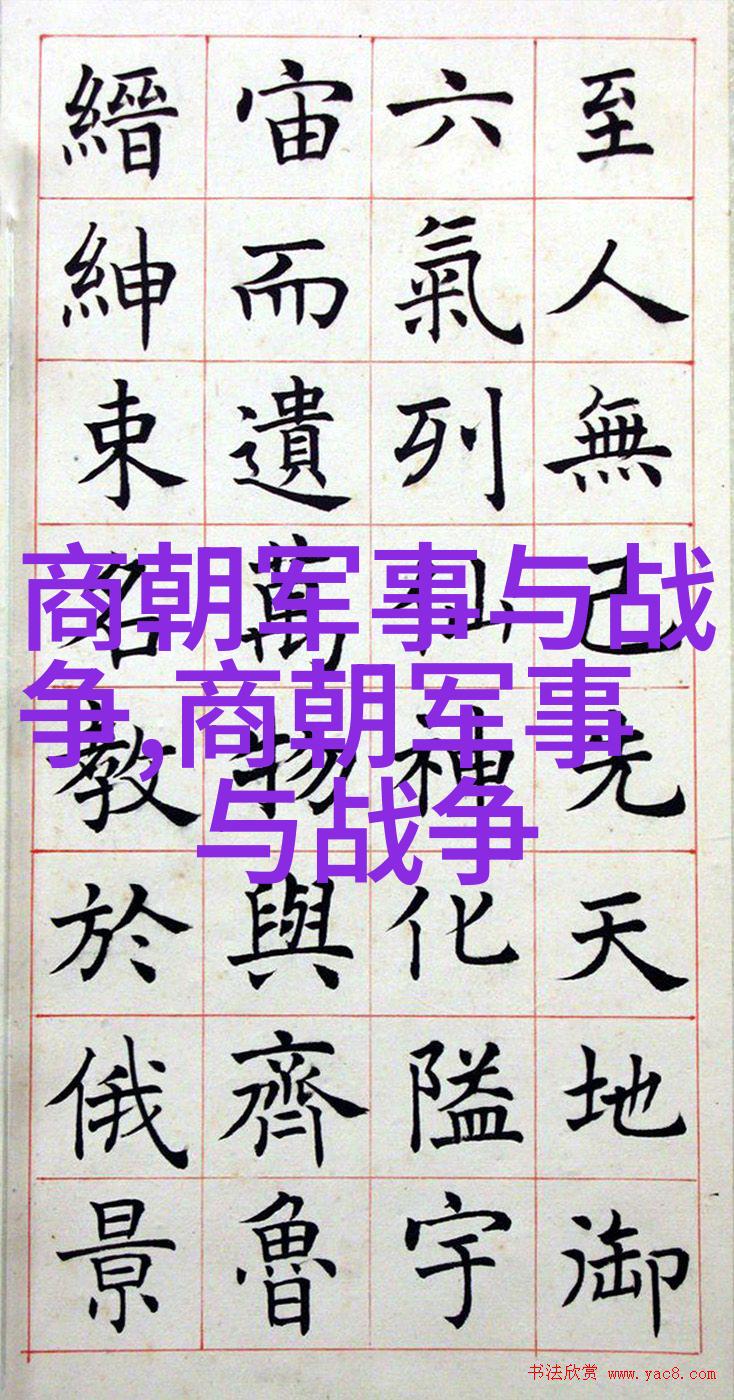 至人無己先天地御
六氣列仙神化隘宇
宙而遺萬物與齊魯
縉紳束名教於俄景
商朝军事与战
争,商朝军事
与战争
书法欣赏 www.yac8.com